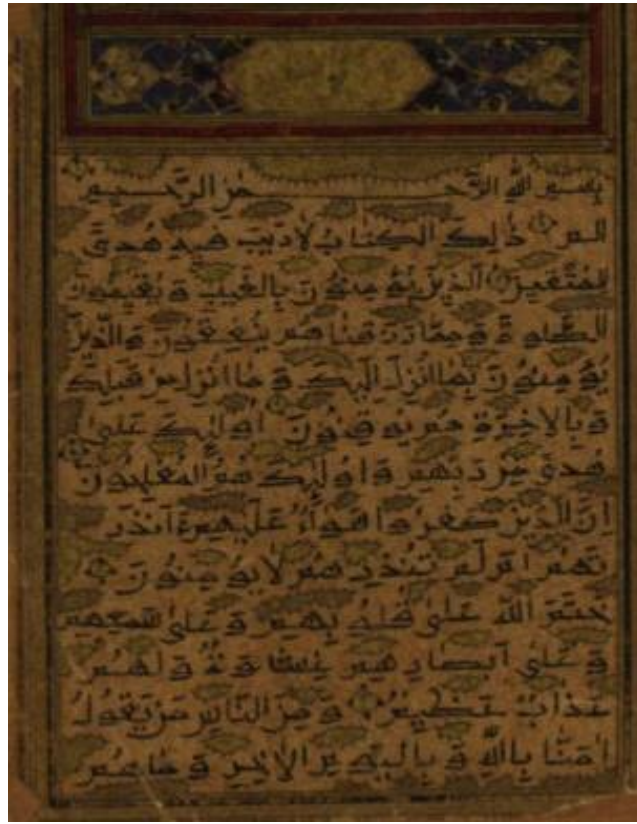 بِسْمِ اللهِ الرَّحْمٰنِ الرَّحِيْمِ
الم ذٰلِكَ الْكِتَابُ لَارَيْبَ فِيهِ هُدًى
لِلْمُتَّقِينَ الَّذِينَ يُؤْمِنُونَ بِالْغَيْبِ وَيُقِيمُونَ
الصَّلٰوةَ وَمِمَّا رَزَقْنَاهُمْ يُنْفِقُونَ وَالَّذِينَ
يُؤْمِنُونَ بِمَا اُنْزِلَ اِلَيْكَ وَمَا اُنْزِلَ مِنْ قَبْلِكَ
وَبِالْاٰخِرَةِ هُمْ يُوقِنُونَ اُولٰئِكَ عَلٰى
هُدًى مِنْ رَبِّهِمْ وَاُولٰئِكَ هُمُ الْمُفْلِحُونَ
اِنَّ الَّذِينَ كَفَرُوا سَوَاءٌ عَلَيْهِمْ ءَاَنْذَرْ
تَهُمْ اَمْ لَمْ تُنْذِرْهُمْ لَا يُؤْمِنُونَ
خَتَمَ اللهُ عَلٰى قُلُوبِهِمْ وَعَلٰى سَمْعِهِمْ
وَعَلٰى اَبْصَارِهِمْ غِشَاوَةٌ وَلَهُمْ
عَذَابٌ عَظِيمٌ وَمِنَ النَّاسِ مَنْ يَقُولُ
اٰمَنَّا بِاللهِ وَبِالْيَوْمِ الْاٰخِرِ وَمَا هُمْ